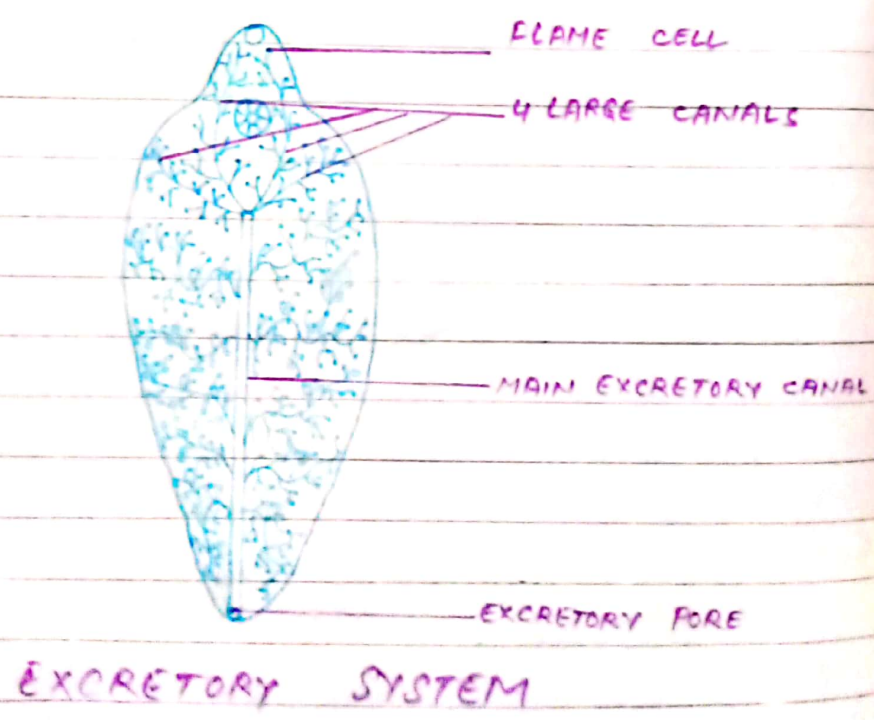 FLAME CELL
4 LARGE CANALS
MAIN EXCRETORY CANAL
EXCRETORY PORE
EXCRETORY SYSTEM